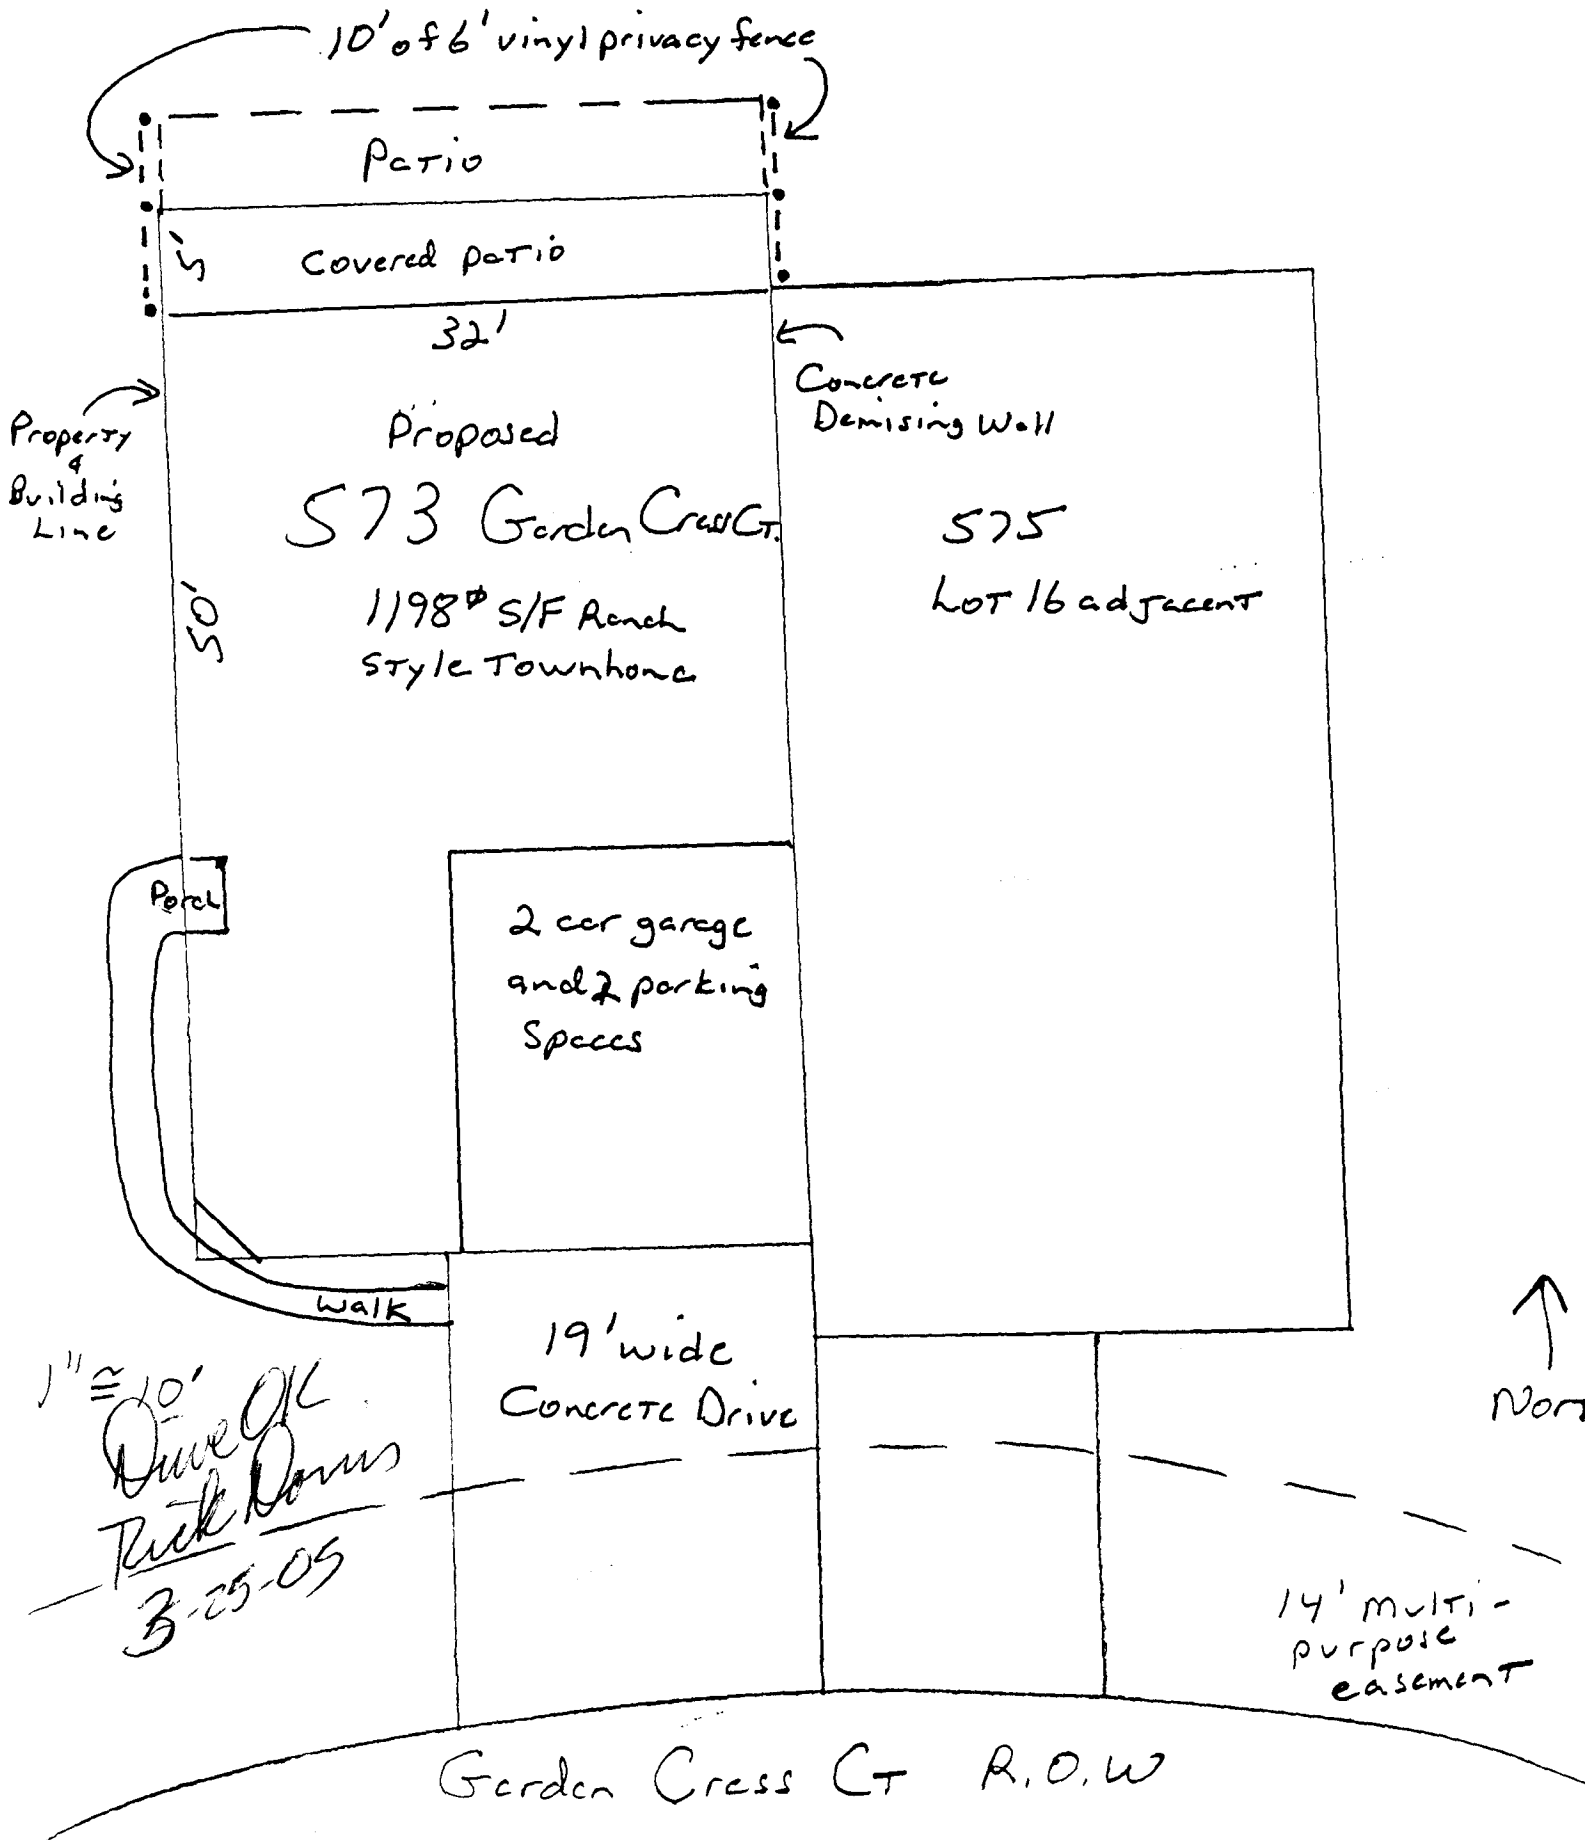 10' of 6' vinyl privacy fence
Patio
5'
Covered patio
32'
Property
&
Building
Line
Concrete
Demising Wall
Proposed
573 Garden Cress CT.
1198# S/F Ranch
Style Townhome
575
LOT 16 adjacent
50'
Porch
2 car garage
and 2 parking
Spaces
Walk
19' wide
Concrete Drive
1" ≅ 10'
Drive OK
Rick Dorris
3-25-05
14' multi-
purpose
easement
Garden Cress CT R.O.W